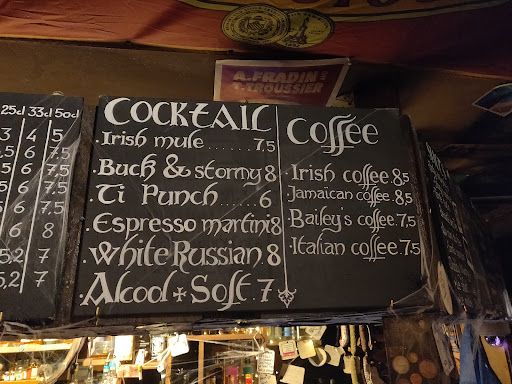 A. FRADIN
T. TROUSSIER
25cl 33cl 50cl
3 4 5
6 7,5
6 7
6 7,5
6 8
5,2 7
5,2 7
COCKTAIL
Irish mule.......7,5
Buck & stormy 8
Ti Punch.....6
Espresso martini 8
White Russian. 8
Alcool + Soft. 7
Coffee
Irish coffee. 8,5
Jamaican coffee. 8,5
Bailey's coffee. 7,5
Italian coffee. 7,5